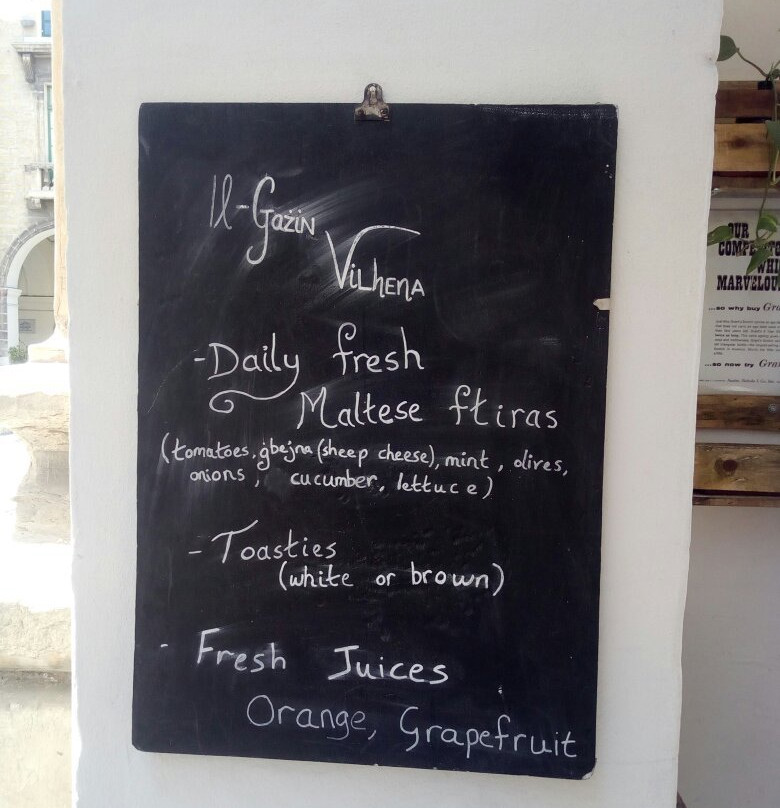 Il-Gażin
Vilhena
-Daily fresh
Maltese ftiras
(tomatoes, ġbejna (sheep cheese), mint, olives,
onions, cucumber, lettuce)
- Toasties
(white or brown)
- Fresh Juices
Orange, Grapefruit
OUR
MARVELOU
...so why buy Gra
...so now try Gra